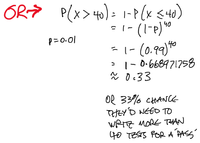 OR → P(X > 40) = 1 - P(X ≤ 40)
= 1 - (1-p)^40
p = 0.01
= 1 - (0.99)^40
= 1 - 0.668971758
≈ 0.33
OR 33% CHANCE
THEY'D NEED TO
WRITE MORE THAN
40 TESTS FOR A "PASS"